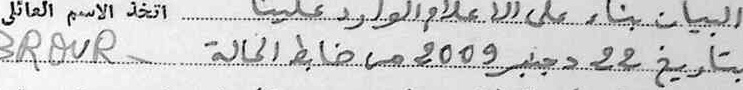 البيان بناء على الاعلام الوارد علينا ... اتخذ الاسم العائلي
بتاريخ 22 دجنبر 2009 من ضابط الحالة ... BROUR